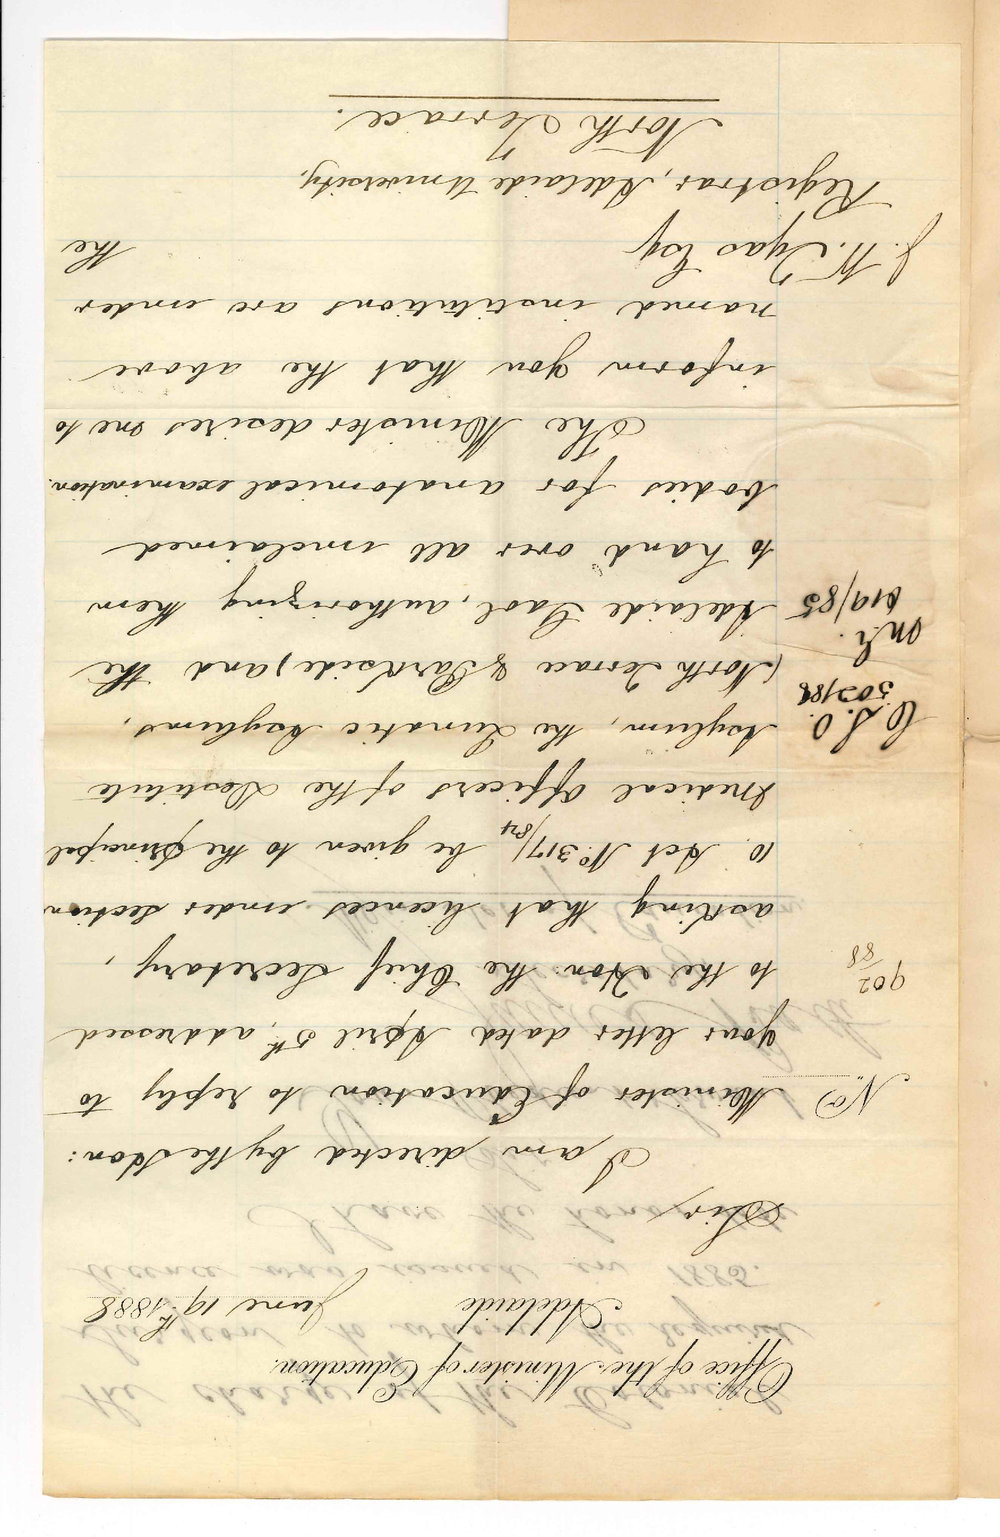 Office of the Minister of Education.
Adelaide June 19th 1888
Sir,
I am directed by the Hon:
No.
Minister of Education to reply to
your letter dated April 5th, addressed
902
88
to the Hon: the Chief Secretary,
asking that licences under section
10. Act No. 317/84 be given to the principal
Medical Officers of the Destitute
C.S.O.
502/88
Asylum, the Lunatic Asylums,
(North Terrace & Parkside) and the
619/85
Adelaide Gaol, authorizing them
to hand over all unclaimed
bodies for anatomical examination.
The Minister desires me to
inform you that the above
named institutions are under
J. W. Tyas Esq the
Registrar, Adelaide University,
North Terrace.